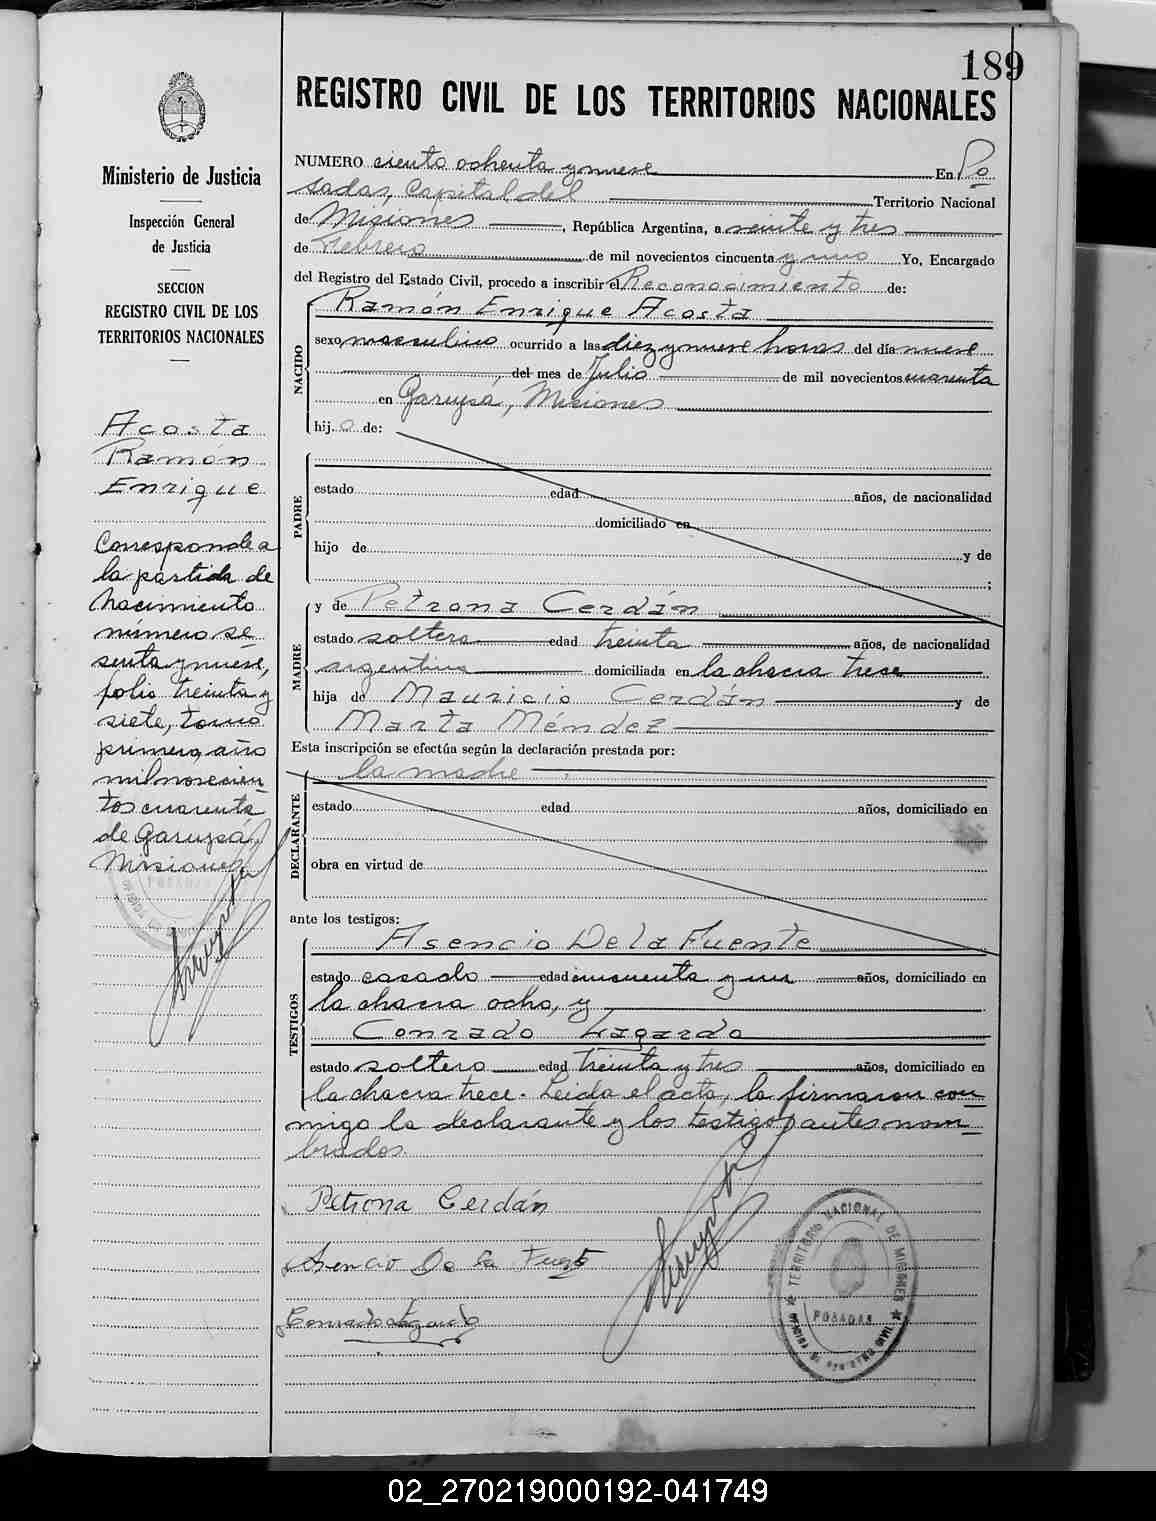 189
REGISTRO CIVIL DE LOS TERRITORIOS NACIONALES
Ministerio de Justicia
Inspección General
de Justicia
SECCION
REGISTRO CIVIL DE LOS
TERRITORIOS NACIONALES
Acosta
Ramón
Enrique
Corresponde a
la partida de
nacimiento
número se
senta y nueve,
folio treinta y
siete, tomo
primero, año
mil novecien
tos cuarenta
de Garupá,
Misiones
NUMERO ciento ochenta y nueve En Po
sadas, Capital del Territorio Nacional
de Misiones, República Argentina, a veinte y tres
de Febrero de mil novecientos cincuenta y uno Yo, Encargado
del Registro del Estado Civil, procedo a inscribir el Reconocimiento de:
Ramón Enrique Acosta
NACIDO
sexo masculino ocurrido a las diez y nueve horas del día nueve
del mes de Julio de mil novecientos cuarenta
en Garupá, Misiones
hij o de:
PADRE
estado edad años, de nacionalidad
domiciliado en
hijo de y de
;
MADRE
y de Petrona Cerdán
estado soltera edad treinta años, de nacionalidad
argentina domiciliada en la chacra trece
hija de Mauricio Cerdán y de
Marta Méndez
Esta inscripción se efectúa según la declaración prestada por:
la madre
DECLARANTE
estado edad años, domiciliado en
obra en virtud de
ante los testigos:
TESTIGOS
Asencio De la Fuente
estado casado edad cincuenta y un años, domiciliado en
la chacra ocho, y
Conrado Lagardo
estado soltero edad treinta y tres años, domiciliado en
la chacra trece. Leida el acta, la firmaron con
migo la declarante y los testigos antes nom
brados.
Petrona Cerdán
Asencio De la Fuente
Conrado Lagardo
TERRITORIO NACIONAL DE MISIONES
POSADAS
OFICINA DE REGISTRO CIVIL
02_270219000192-041749